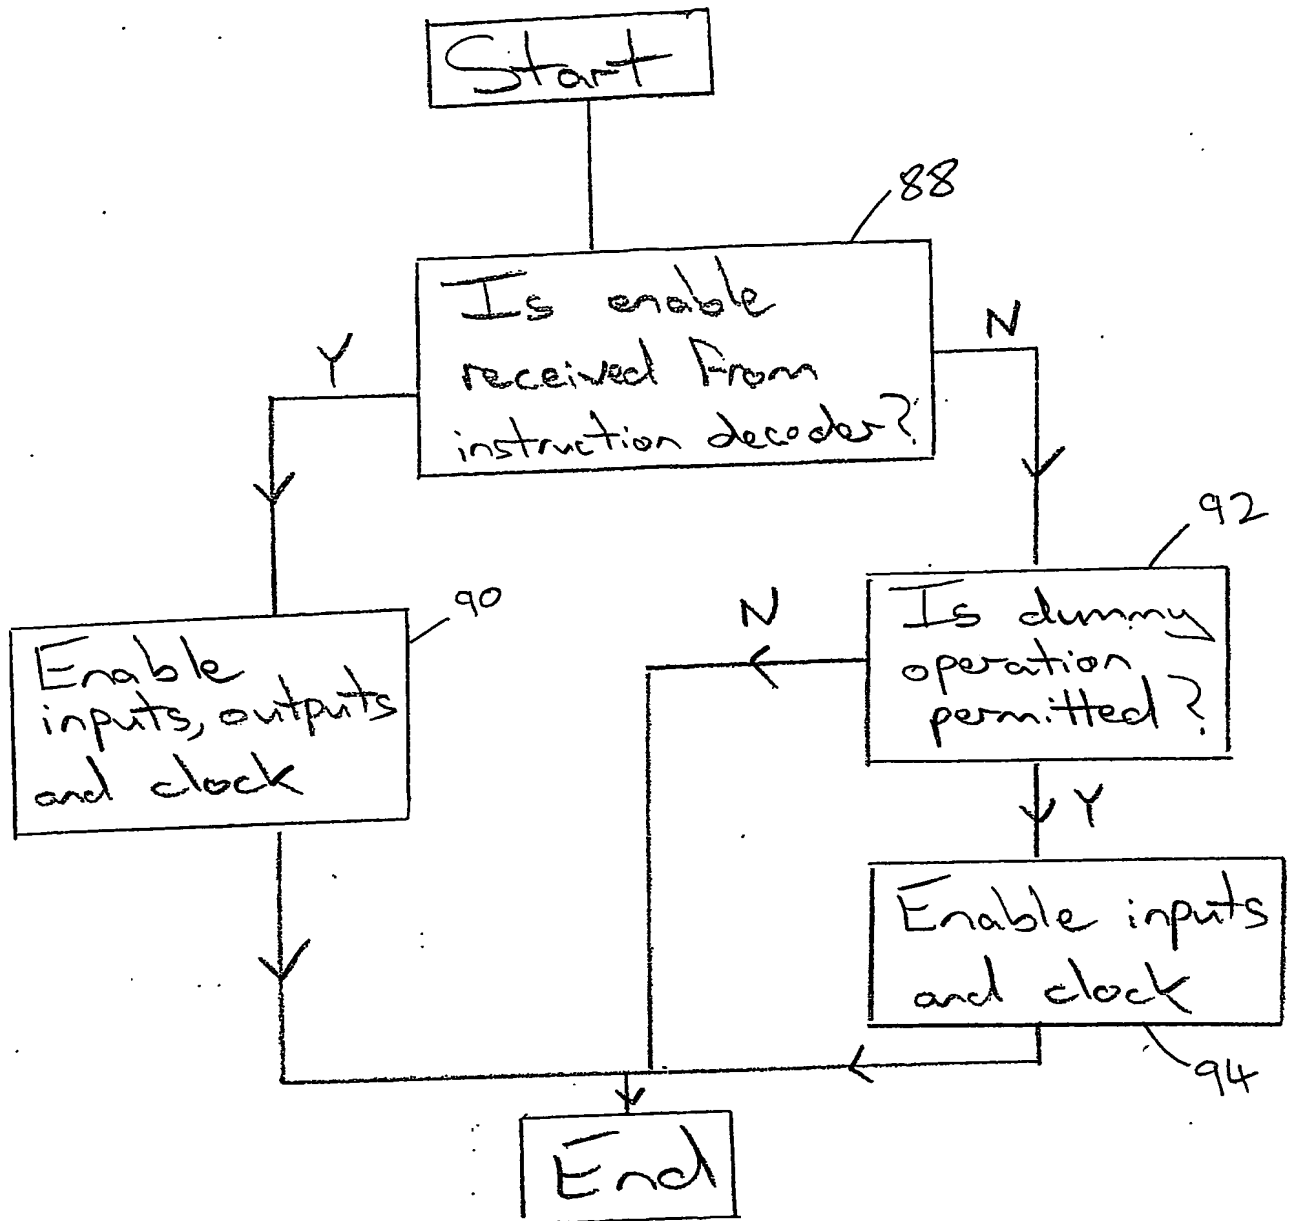 Start
88
Is enable
received from
instruction decoder?
Y
N
92
Is dummy
operation
permitted?
N
90
Enable
inputs, outputs
and clock
Y
Enable inputs
and clock
94
End